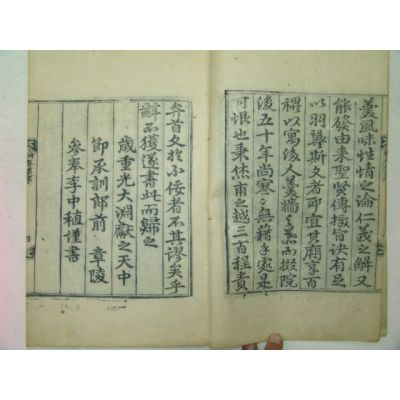 義風味性情之論仁義之解又
能發由來聖賢傳授旨訣有足
以羽翼斯文者即宜其廟享百
禩以寓後人羹墻之慕而掇院
後五十年尚寥寥無籍手處是
可恨也秉然甫之越三百程責
弁首文於不佞者不其謬矣乎
辭不獲遂書此而歸之
歲重光大淵獻之天中
節承訓郎前 章陵
參奉李中植謹書